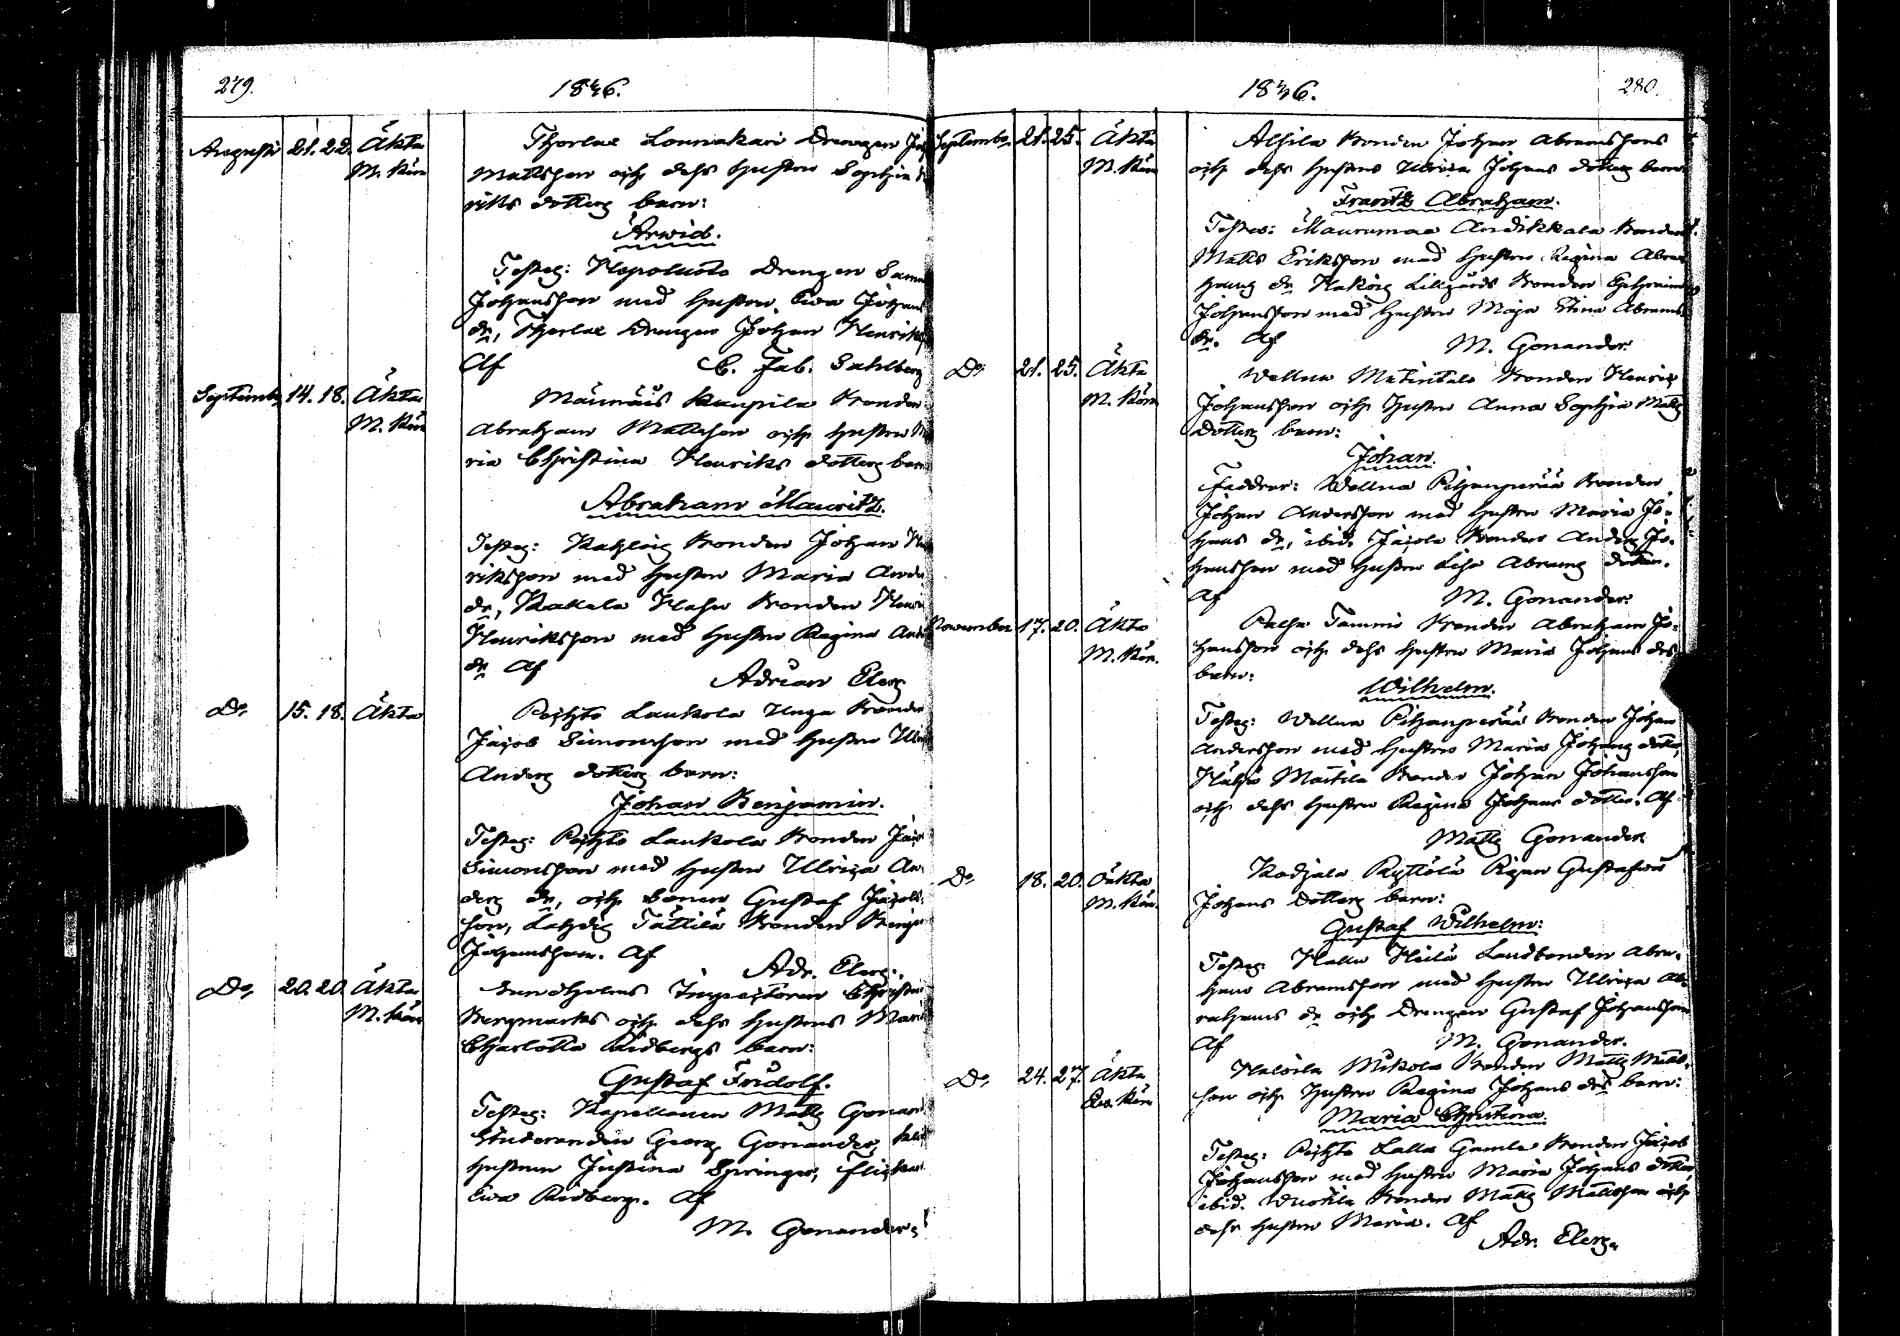 279.
1846.
Augusti 21. 22. Äkta
M. Kön
Thorlax Lounakari Drengen
Mattsson och dess Hustru Sophia
riks dotters barn:
Arwid.
Testes: Nepoluoto Drengen Samu
Johansson med Hustru Ewa Johans
dr, Thorlax Drengen Johan Henriks
Af C. Fab. Sahlberg
September 14. 18. Äkta
M. Kön
Männäis Kaupila Bonden
Abraham Mattsson och Hustru
ria Christina Henriks dotters barn
Abraham Mauritz.
Testes: Bonden Johan
riksson med Hustru Maria
dr, Bonden
Henriksson med Hustru Regina
dr Af
Adrian Elers
Do, 15. 18. Äkta
Pyhto Laukola Unga Bonden
Jacob Simonsson med Hustru Ulri
Anders dotters barn:
Johan Benjamin.
Testes: Pyhto Laukola Bonden Jac
Simonsson med Hustru Ulrica An
ders dr, och Sonen Gustaf Jacobs
son, Tättilä Bonden Benja
Johansson. Af
Adr. Elers.
Do, 20. 20. Äkta
M. Kön
Sundholms Inspectoren Christian
Bergmarks och dess Hustrus Maria
Charlotta Widbergs barn:
Gustaf Fridolf.
Testes: Kapellanen Matts Gonan
Studeranden Georg Gonander,
Hustrun Justina Springer, Flickan
Ewa Widberg. Af
M. Gonander
1846.
280.
September 21. 25. Äkta
M. Kön
Alhila Bonden Johan Abramssons
och dess Hustrus Ulrica Johans dotters barn:
Frantz Abraham.
Testes: Maurumaa Andikkala Bonden
Matts Eriksson med Hustru Regina Abra
hams dr Lillgårds Bonden Ephraim
Johansson med Hustru Maja Stina Abrams
dr. Af M. Gonander.
Do 21. 25. Äkta
M. Kön
Wellua Matintalo Bonden Henric
Johansson och Hustru Anna Sophia Matts
dotters barn:
Johan.
Faddrar: Wellua Pihanperää Bonden
Johan Andersson med Hustru Maria Jo-
hans dr, ibid. Jacola Bonden Anders Jo-
hansson med Hustru Lisa Abrams dotter.
Af M. Gonander.
November 17. 20. Äkta
M. Kön.
Palsa Tammio Bonden Abraham Jo-
hansson och dess Hustru Maria Johans drs
barn:
Wilhelm.
Testes: Wellua Pihanperää Bonden Johan
Andersson med Hustru Maria Johans dotter,
Mattila Bonden Johan Johansson
och dess Hustru Regina Johans dotter. Af
Matts Gonander
Do, 18. 20. Oäkta
M. Kön.
Kodjala Kyttölä Pigan Gustafwa
Johans dotters barn:
Gustaf Wilhelm:
Testes Landbonden Abra-
ham Abramsson med Hustru Ulrica Ab-
rahams dr och Drengen Gustaf Johansson
Af M. Gonander.
Do, 24. 27. Äkta
Qv. Kön
Mikola Bonden Matts Matts-
son och Hustru Regina Johans drs barn:
Maria Christina.
Testes: Pyhto Lalla Gamla Bonden Jacob
Johansson med Hustru Maria Johans dotter
ibid. Bonden Matts Mattsson och
dess Hustru Maria. Af
Adr. Elers.